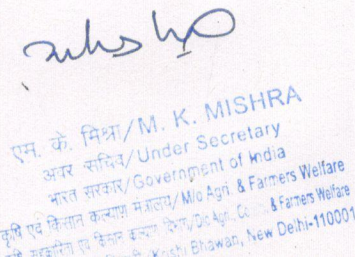 एम. के. मिश्रा/M. K. MISHRA
अवर सचिव/Under Secretary
भारत सरकार/Government of India
कृषि एवं किसान कल्याण मंत्रालय/M/o Agri. & Farmers Welfare
एवं किसान कल्याण विभाग/D/o Agri., & Farmers Welfare
Krishi Bhawan, New Delhi-110001